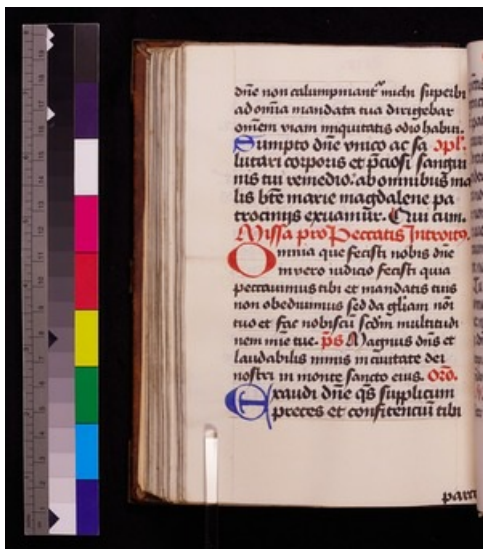 dn̄e non calumpniant᷑ michi superbi
ad om̄ia mandata tua dirigebar
om̄em viam iniquitatis odio habui.
Sumpto dn̄e vnico ac sa 9pl'.
lutari corporis et p̄ciosi sangui
nis tui remedio: ab omnibus ma
lis bt̄e marie magdalene pa
trocinijs exuamur̄. Qui cum.
Missa pro Peccatis Introitꝯ.
Omnia que fecisti nobis dn̄e
in vero iudicio fecisti quia
peccauimus tibi et mandatis tuis
non obediuimus sed da gl̄iam nōi
tuo et fac nobiscū scd̄m multitudi
nem mīe tue. p̄s Magnus dn̄s et
laudabilis nimis in ciuitate dei
nostri in monte sancto eius. Orō.
Exaudi dn̄e qs̄ supplicum
preces et confitenciū tibi
parce